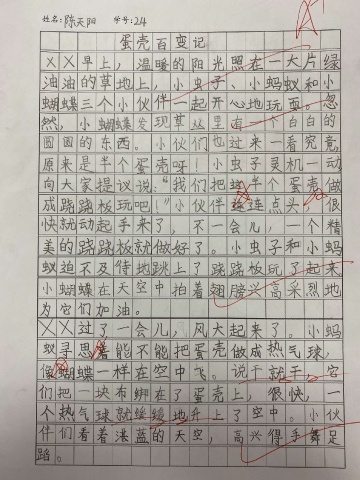 姓名:陈天阳 学号:24
蛋壳百变记
××早上，温暖的阳光照在一大片绿
油油的草地上，小虫子、小蚂蚁和小
蝴蝶三个小伙伴一起开心地玩耍。忽
然，小蝴蝶发现草丛里有一个白白的
圆圆的东西。小伙们也过来一看究竟，
原来是半个蛋壳呀！小虫子灵机一动，
向大家提议说：“我们把半个蛋壳做
成跷跷板玩吧！”小伙伴连连点头，很
快就动起手来了，不一会儿，一个精
美的跷跷板就做好了。小虫子和小蚂
蚁迫不及待地跳上了跷跷板玩了起来，
小蝴蝶在天空中拍着翅膀兴高采烈地
为它们加油。
××过了一会儿，风大起来了。小蚂
蚁寻思着能不能把蛋壳做成热气球，
像蝴蝶一样在空中飞。说干就干，它
们把一块布绑在了蛋壳上，很快，一
个热气球就缓缓地升上了空中。小伙
伴们看着湛蓝的天空，高兴得手舞足
蹈。